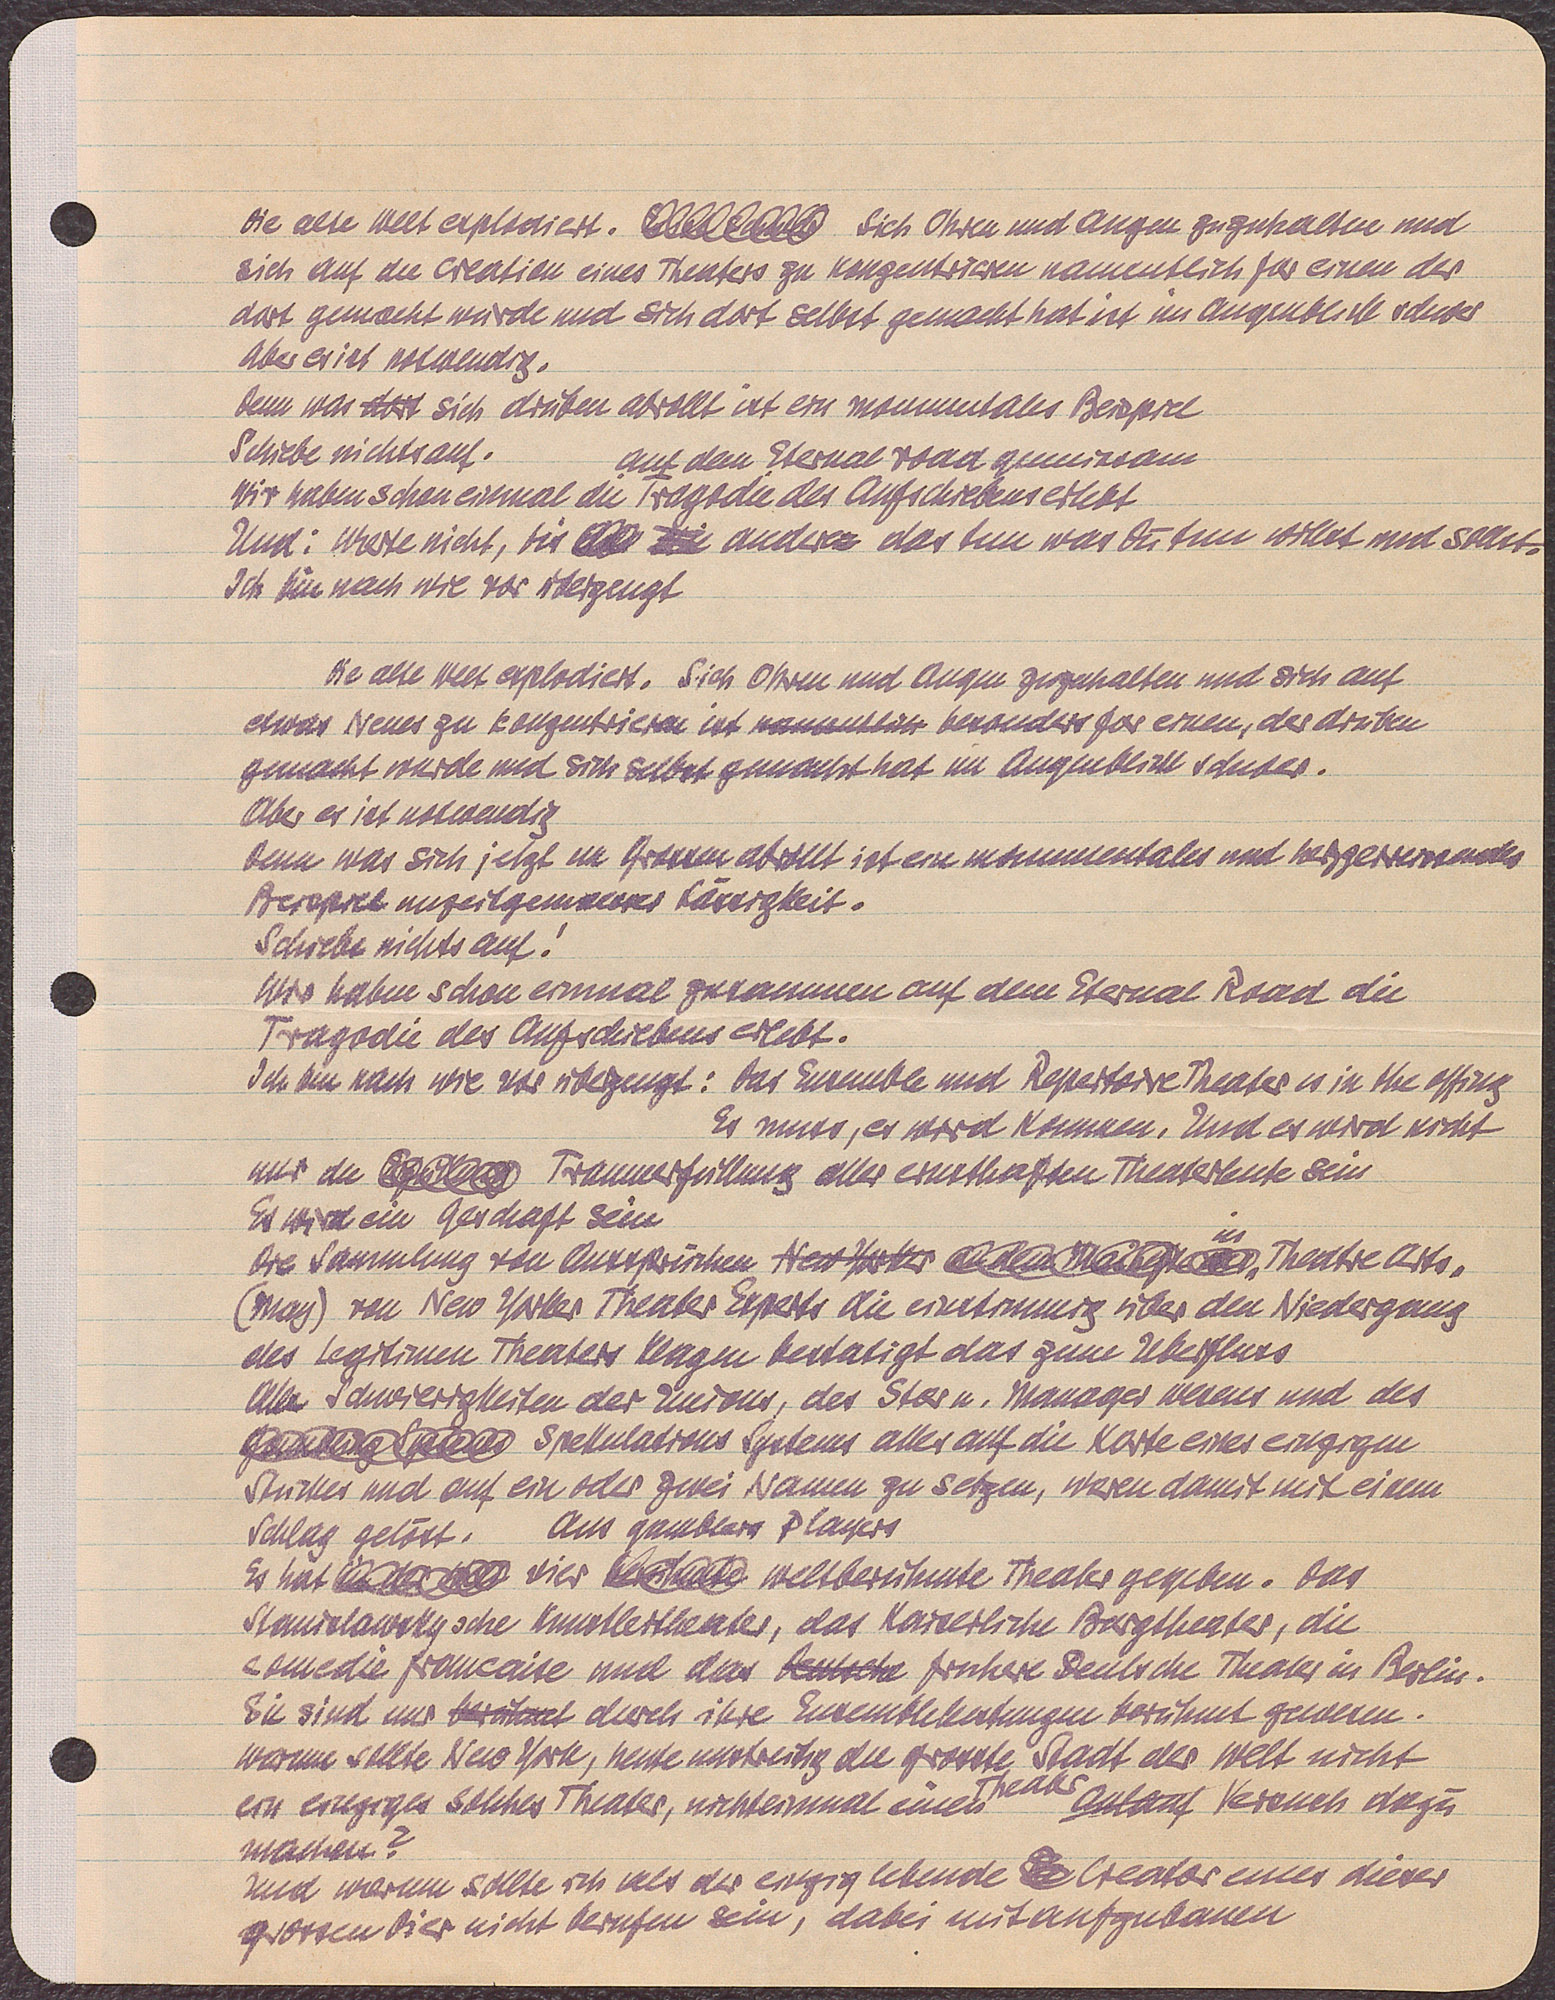 Die alte Welt explodiert. Sich Ohren und Augen zuzuhalten und
sich auf die Creation eines Theaters zu konzentrieren namentlich für einen der
dort gemacht wurde und sich dort selbst gemacht hat ist im Augenblick schwer
Aber es ist notwendig.
Denn was dort sich drüben abrollt ist ein monumentales Beispiel
Schiebe nichts auf.
auf dem Eternal road gemeinsam
Wir haben schon einmal die Tragödie des Aufschiebens erlebt
Und: Warte nicht, bis andere das tun was Du tun willst und sollst.
Ich bin nach wie vor überzeugt
Die alte Welt explodiert. Sich Ohren und Augen zuzuhalten und sich auf
etwas Neues zu konzentrieren ist namentlich besonders für einen, der drüben
gemacht wurde und sich selbst gemacht hat im Augenblick schwer.
Aber es ist notwendig
Denn was sich jetzt im Grossen abrollt ist ein monumentales und herzzerreissendes
Beispiel unzeitgemässer Lässigkeit.
Schiebe nichts auf!
Wir haben schon einmal zusammen auf dem Eternal Road die
Tragödie des Aufschiebens erlebt.
Ich bin nach wie vor überzeugt: Das Ensemble und Repertoire Theater is in the offing
Es muss, es wird kommen. Und es wird nicht
nur die Traumerfüllung aller ernsthaften Theaterleute sein
Es wird ein Geschäft sein
in
Die Sammlung von Aussprüchen New Yorker „Theatre Arts„
(May) von New Yorker Theater Experts die einstimmig über den Niedergang
des Legitimen Theaters klagen bestätigt das zum Überfluss
Alle Schwierigkeiten der Unions, des Star u. Manager wesens und des
Spekulations Systems alles auf die Karte eines einzigen
Stückes und auf ein oder zwei Namen zu setzen, wären damit mit einem
Schlag gelöst. Aus gamblers Players
Es hat vier weltberühmte Theater gegeben. Das
Stanislawskysche Künstlertheater, das Kaiserliche Burgtheater, die
comedie francaise und das Deutsche frühere Deutsche Theater in Berlin.
Sie sind nur berühmt durch ihre Ensembleleistungen berühmt gewesen.
Warum sollte New York, heute unstreitig die grösste Stadt der Welt nicht
Theater
ein einziges solches Theater, nichteinmal einen Anlauf Versuch dazu
machen?
Und warum sollte ich als der einzig lebende Creator eines dieser
grossen Vier nicht berufen sein, dabei mitaufzubauen